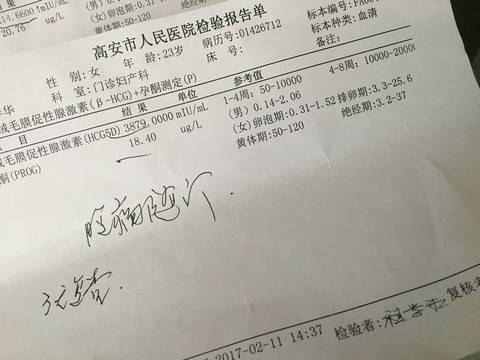 614.6600 mIU/mL
20.76 ug/L
黄体期:50-120
高安市人民医院检验报告单
标本编号:FA00
性别:女 年龄:23岁 病历号:01426712 标本种类:血清
科室:门诊妇产科 床号: 备注:
绒毛膜促性腺激素(β-HCG)+孕酮测定(P)
目 结果 单位 参考值
绒毛膜促性腺激素(HCG5D) 3879.0000 mIU/mL 1-4周: 50-10000 4-8周: 10000-20000
酮(PROG) 18.40 ug/L (男) 0.14-2.06
(女)卵泡期:0.31-1.52 排卵期:3.3-25.6
黄体期:50-120 绝经期:3.2-37
随诊
2017-02-11 14:37 检验者: 复核者